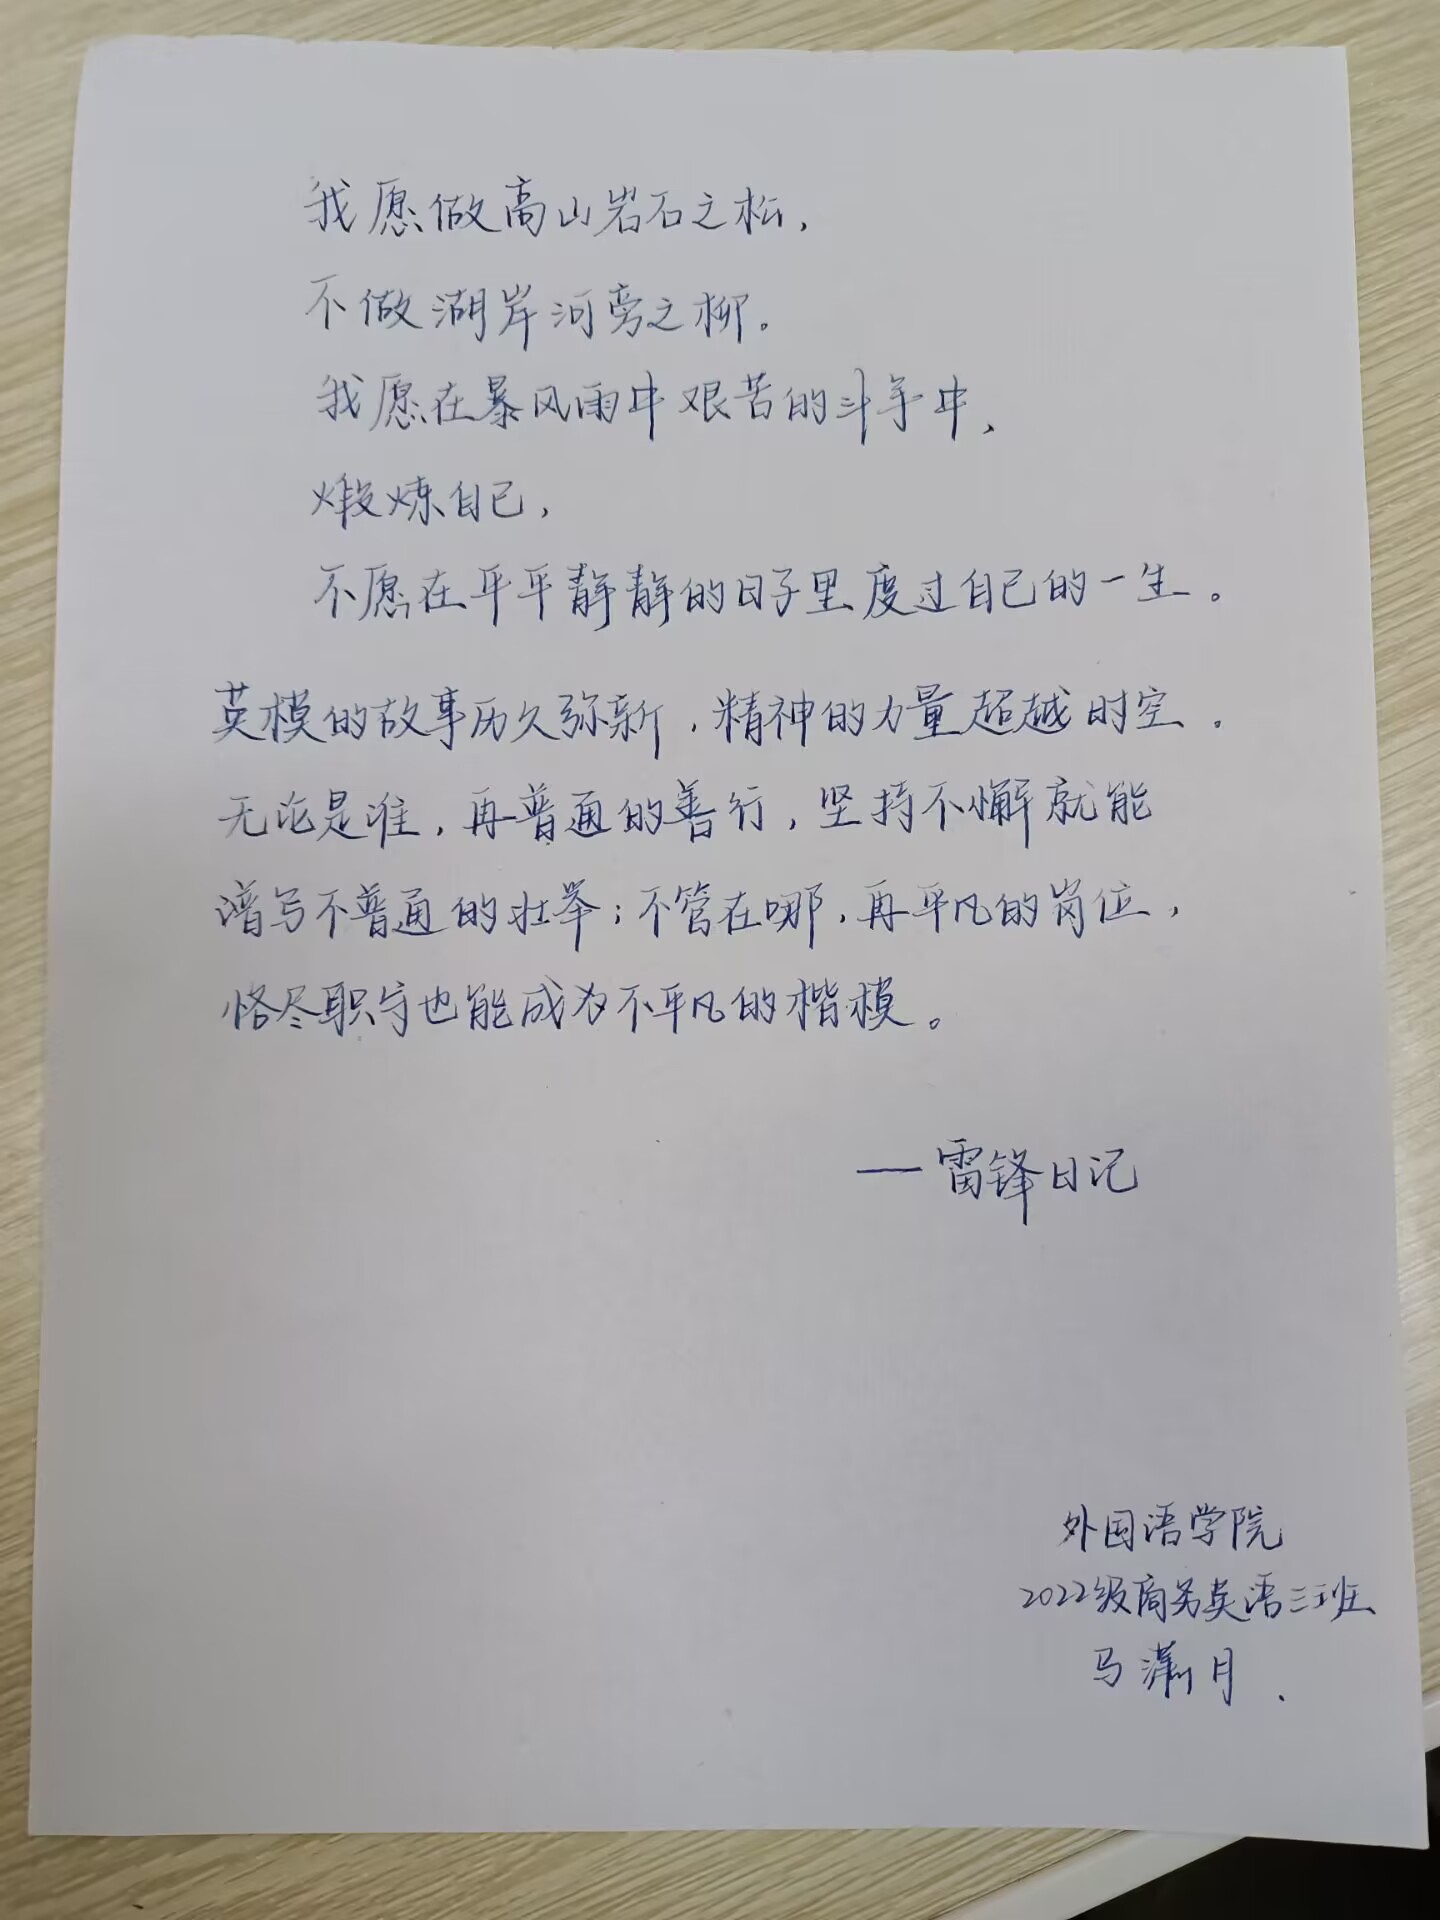 我愿做高山岩石之松，
不做湖岸河旁之柳。
我愿在暴风雨中艰苦的斗争中，
煅炼自己，
不愿在平平静静的日子里度过自己的一生。
英模的故事历久弥新，精神的力量超越时空。
无论是谁，再普通的善行，坚持不懈就能
谱写不普通的壮举；不管在哪，再平凡的岗位，
恪尽职守也能成为不平凡的楷模。
——雷锋日记
外国语学院
2022级商务英语三班
马潇月.